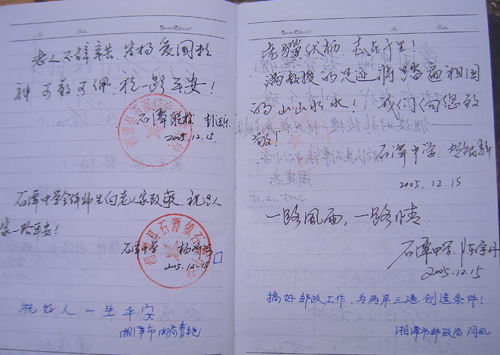 老人不辞辛苦，发扬爱国精
神可敬可佩，祝一路平安！
石潭联校
2005.12.15.
石潭中学全体师生向老人家致敬，祝老人
家一路幸吉！
石潭中学 杨
2005.12.15
祝好人一生平安
湘潭市
老骥伏枥 志在千里！
满敬授的足迹 踏遍祖国
的山山水水！我们向您致
敬！
石潭中学
2005.12.15
一路风雨，一路情.
石潭中学 陈
2005.12.15
搞好邮政工作，为两岸三通创造条件！
湘潭市邮政局